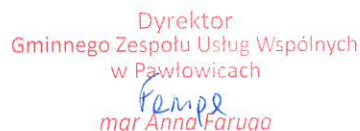 Dyrektor
Gminnego Zespołu Usług Wspólnych
w Pawłowicach
mgr Anna Faruga